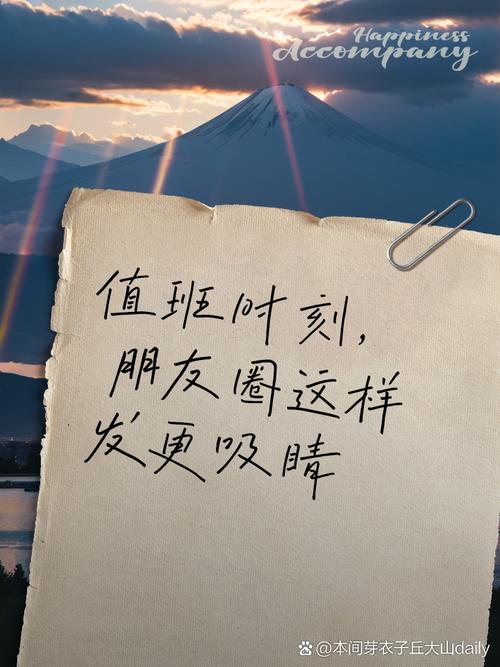 Happiness
Accompany
值班时刻,
朋友圈这样
发更吸睛
@本间芽衣子丘大山daily